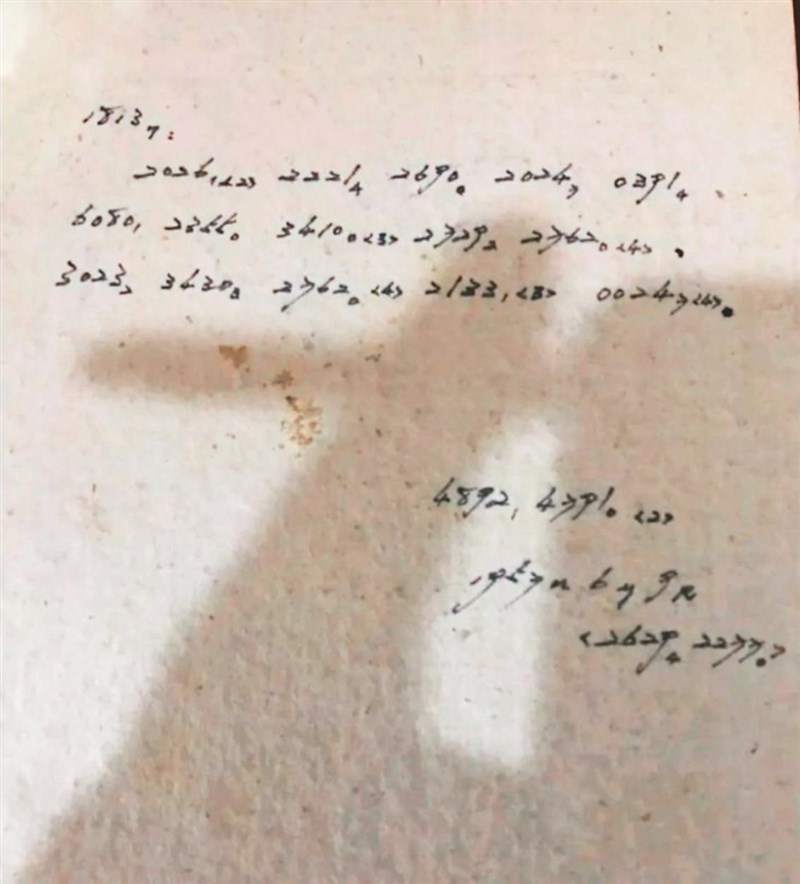 1813₇:
2026₁<2> 2221₄ 2690₀ 2024₇ 0391₄、
6080₁ 2355₀ 3410₀<3> 2729₂ 2762₀<4>.
3023₂ 3430₃ 2762₀<4> 2133₁<3> 0024₇<4>.
4892₁ 4791₀<2>
1957n 6y 9R
<2629₄ 2277₀>